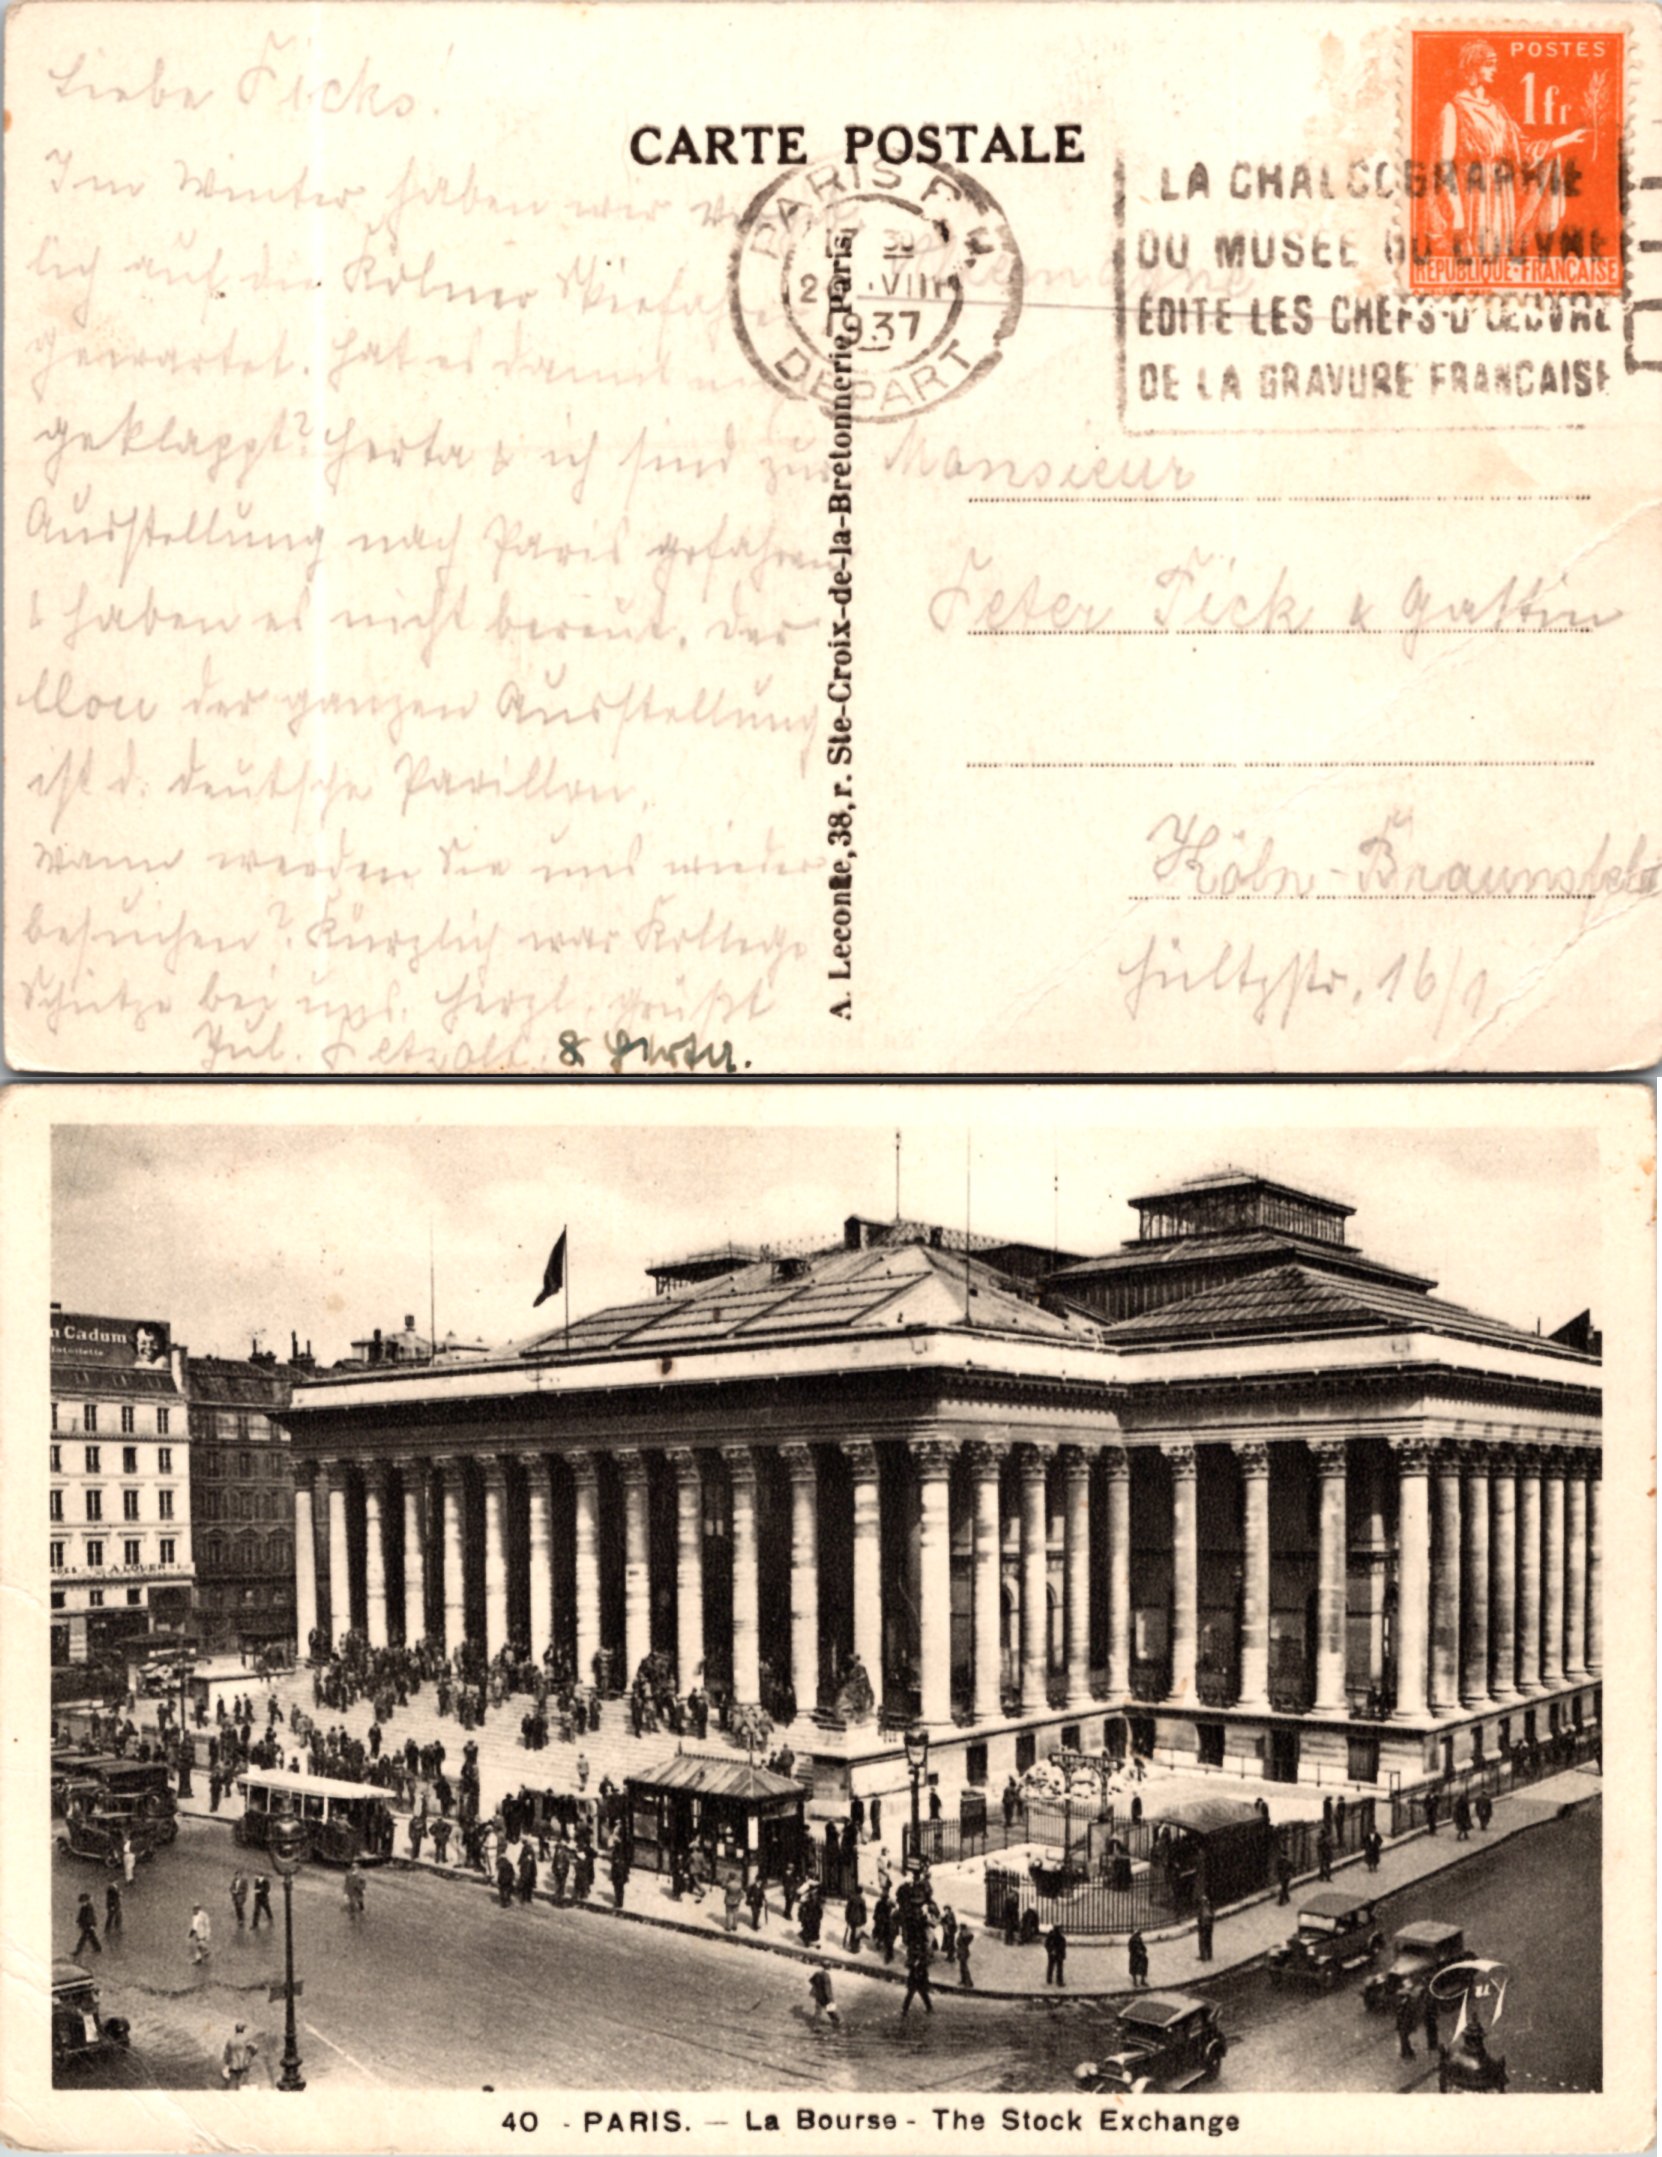 Liebe Ficks!
Im Winter haben wir
lich auf die Kölner Skifahrer
gewartet. Hat es damit
geklappt? Herta & ich sind zur
Ausstellung nach Paris gefahren
& haben es nicht bereut. Der
Clou der ganzen Ausstellung
ist d. deutsche Pavillon.
Wann werden Sie uns wieder
besuchen? Kürzlich war Kollege
Schütze bei uns. Herzl. grüßt
Jul. & Herta.
CARTE POSTALE
A. Leconte, 38, r. Ste-Croix-de-la-Bretonnerie, Paris
PARIS
VIII
1937
DEPART
LA CHALCOGRAPHIE
DU MUSEE DU LOUVRE
EDITE LES CHEFS-D'ŒUVRE
DE LA GRAVURE FRANCAISE
POSTES
1 fr
REPUBLIQUE-FRANÇAISE
Allemagne
Monsieur
Peter Fick & Gattin
Köln-Braunsfeld
Hültzstr. 16/1
n Cadum
A LOUER
METROPOLITAIN
Guy
40 - PARIS. — La Bourse - The Stock Exchange